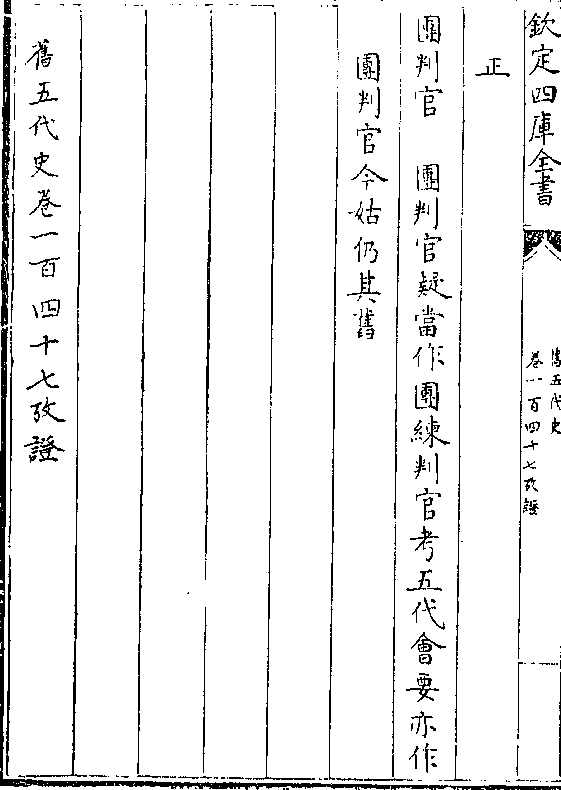 欽定四庫全書
舊五代史
卷一百四十七攷證
正
團判官　團判官疑當作團練判官考五代會要亦作
團判官今姑仍其舊
舊五代史卷一百四十七攷證